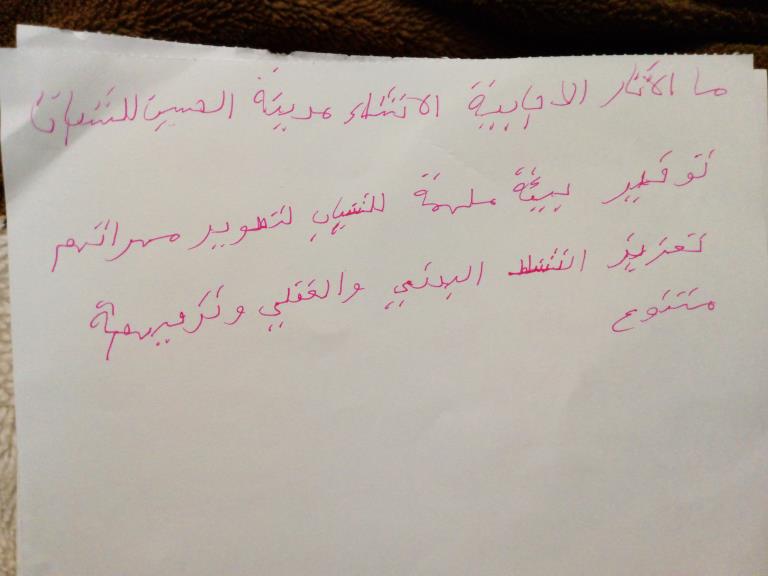 ما الاثار الاجابية الانشاء مدينة الحسين للشباب
توفير بيئة ملهمة للشباب لتطوير مهراتهم
تعزيز النشط البدني والعقلي وترفيهية
متنوع